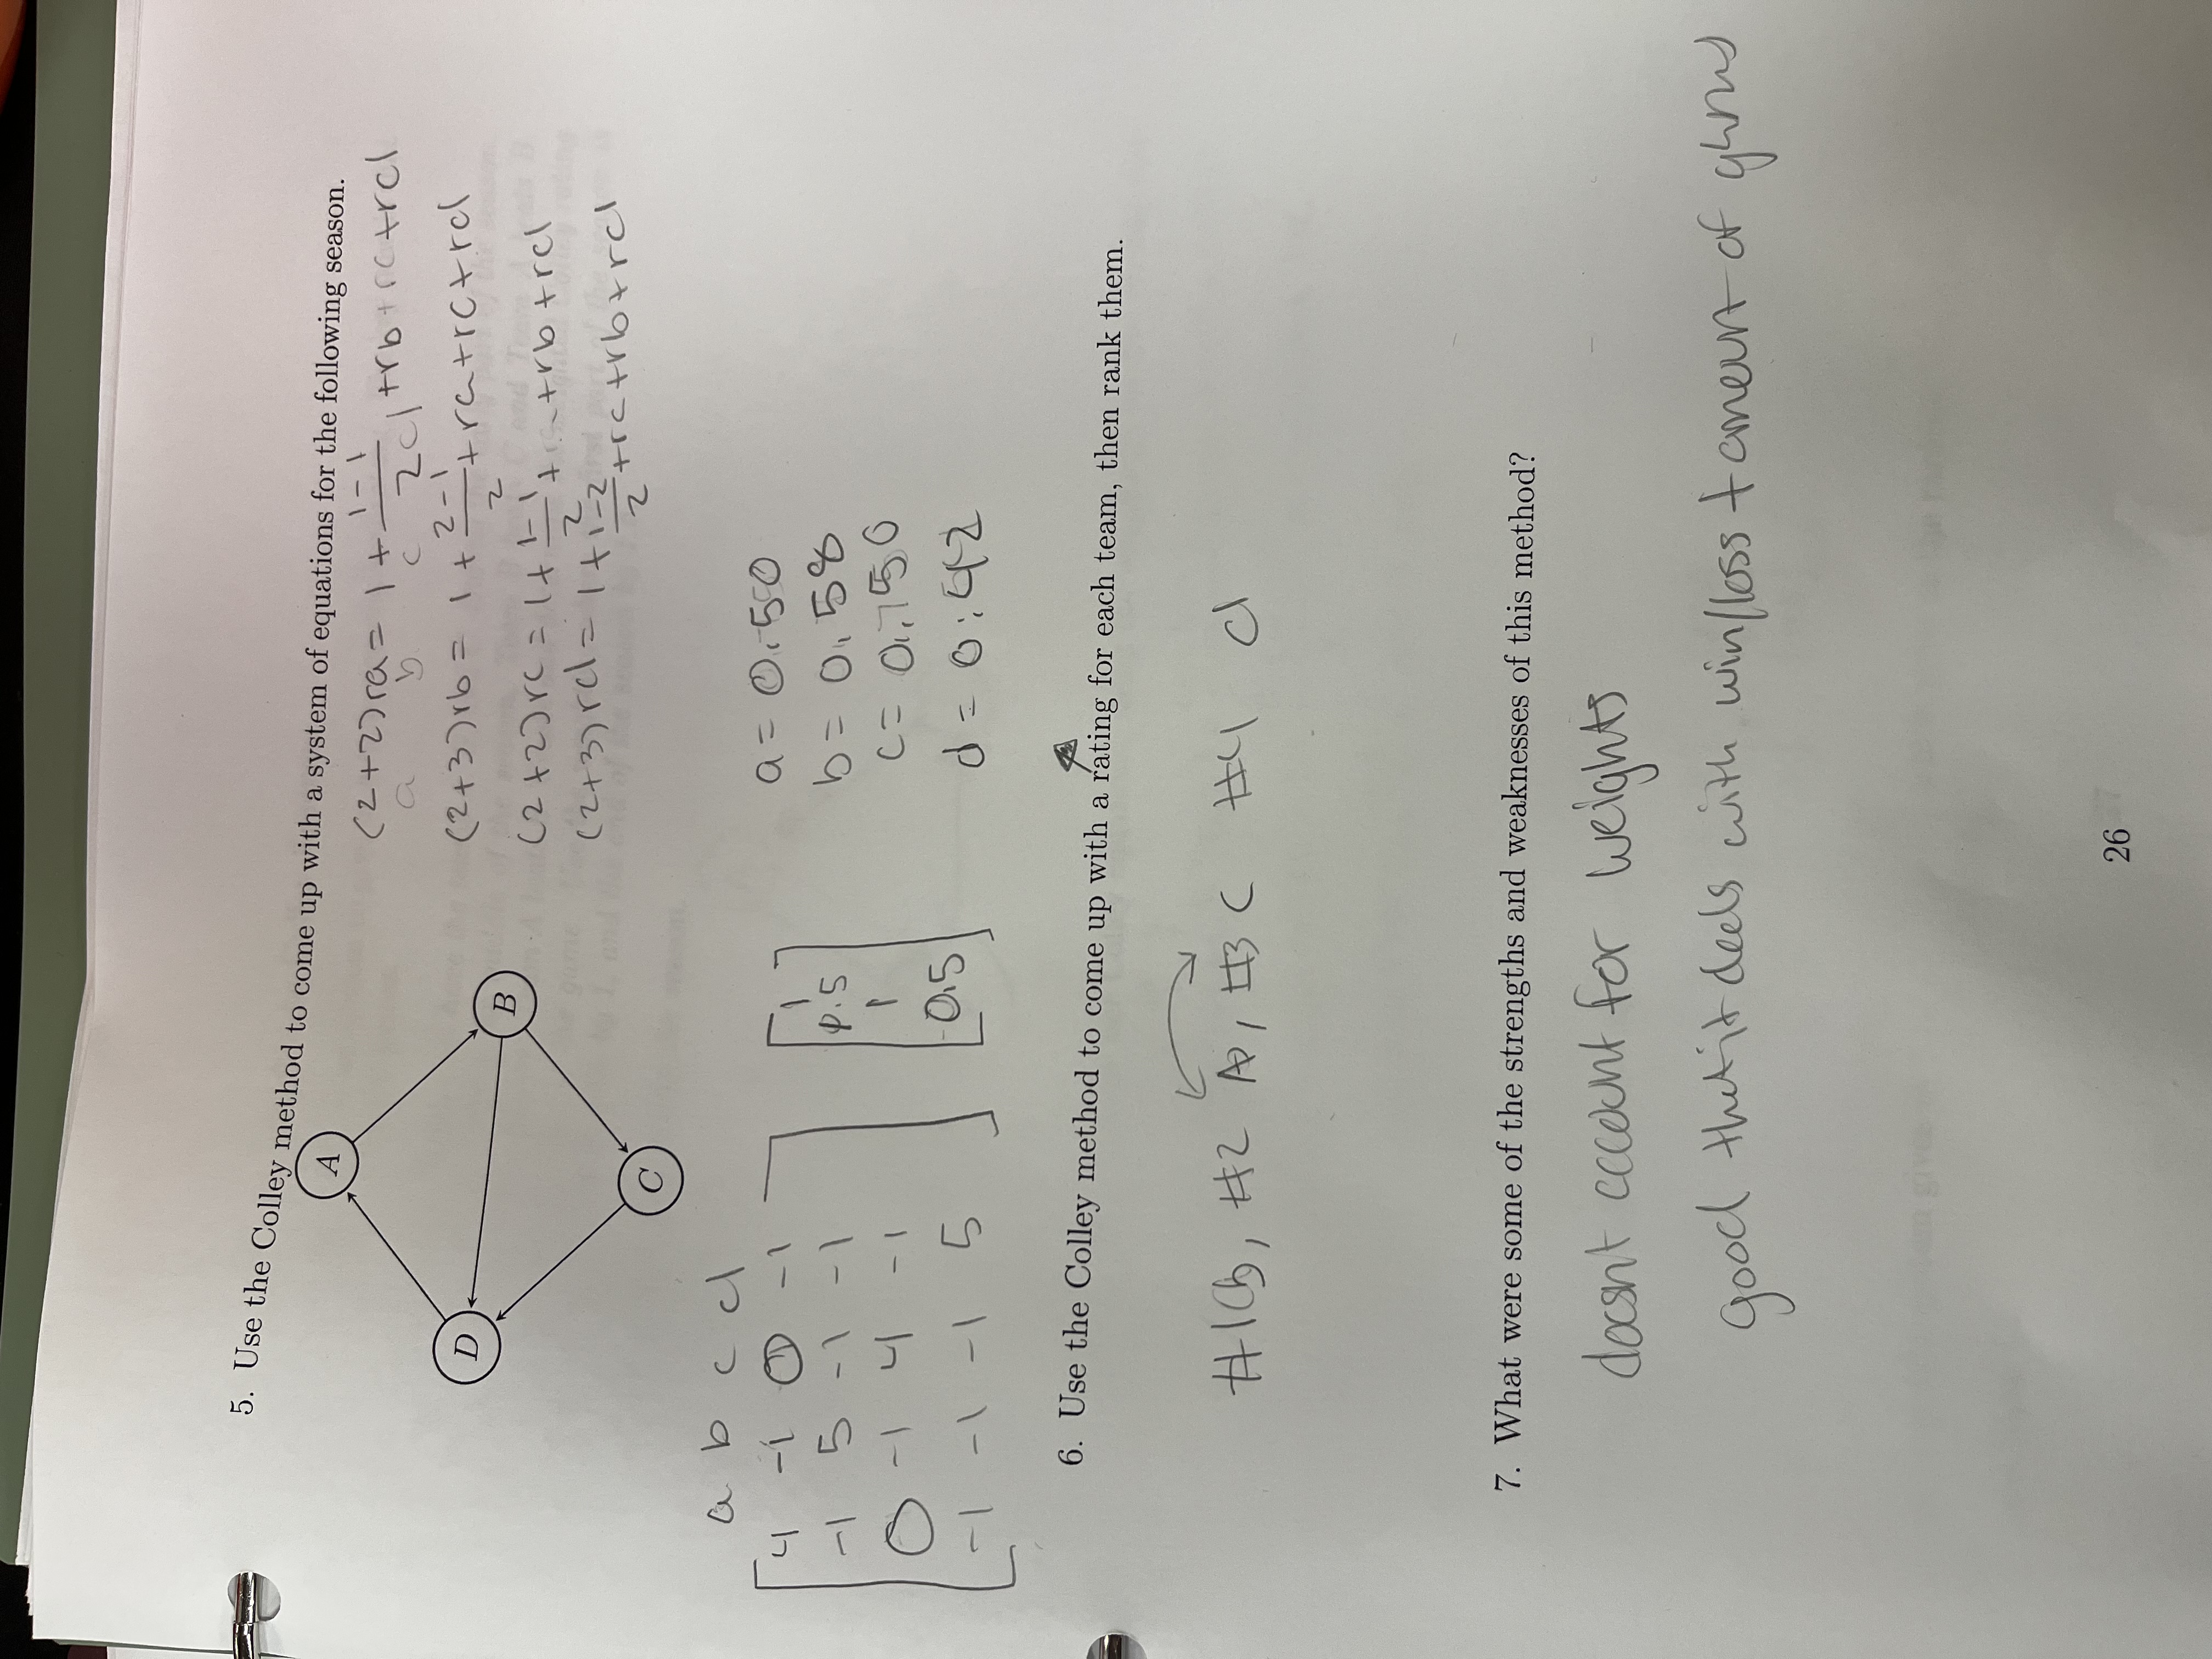 5. Use the Colley method to come up with a system of equations for the following season.
A
D
B
C
(2+2)ra = 1 + 1-1/2 + rb + rc + rd
a b c d
(2+3)rb = 1 + 2-1/2 + ra + rc + rd
(2+2)rc = 1 + 1-1/2 + + rb + rd
(2+3)rd = 1 + 1-2/2 + rc + rb + rd
a b c d
4 -1 0 -1
-1 5 -1 -1
0 -1 4 -1
-1 -1 -1 5
1
1.5
1
0.5
a = 0.50
b = 0.58
c = 0.50
d = 0.42
6. Use the Colley method to come up with a rating for each team, then rank them.
#1 b, #2 A, #3 C #4 d
7. What were some of the strengths and weaknesses of this method?
doesnt account for weights
good that it deals with win/loss + amount of
26